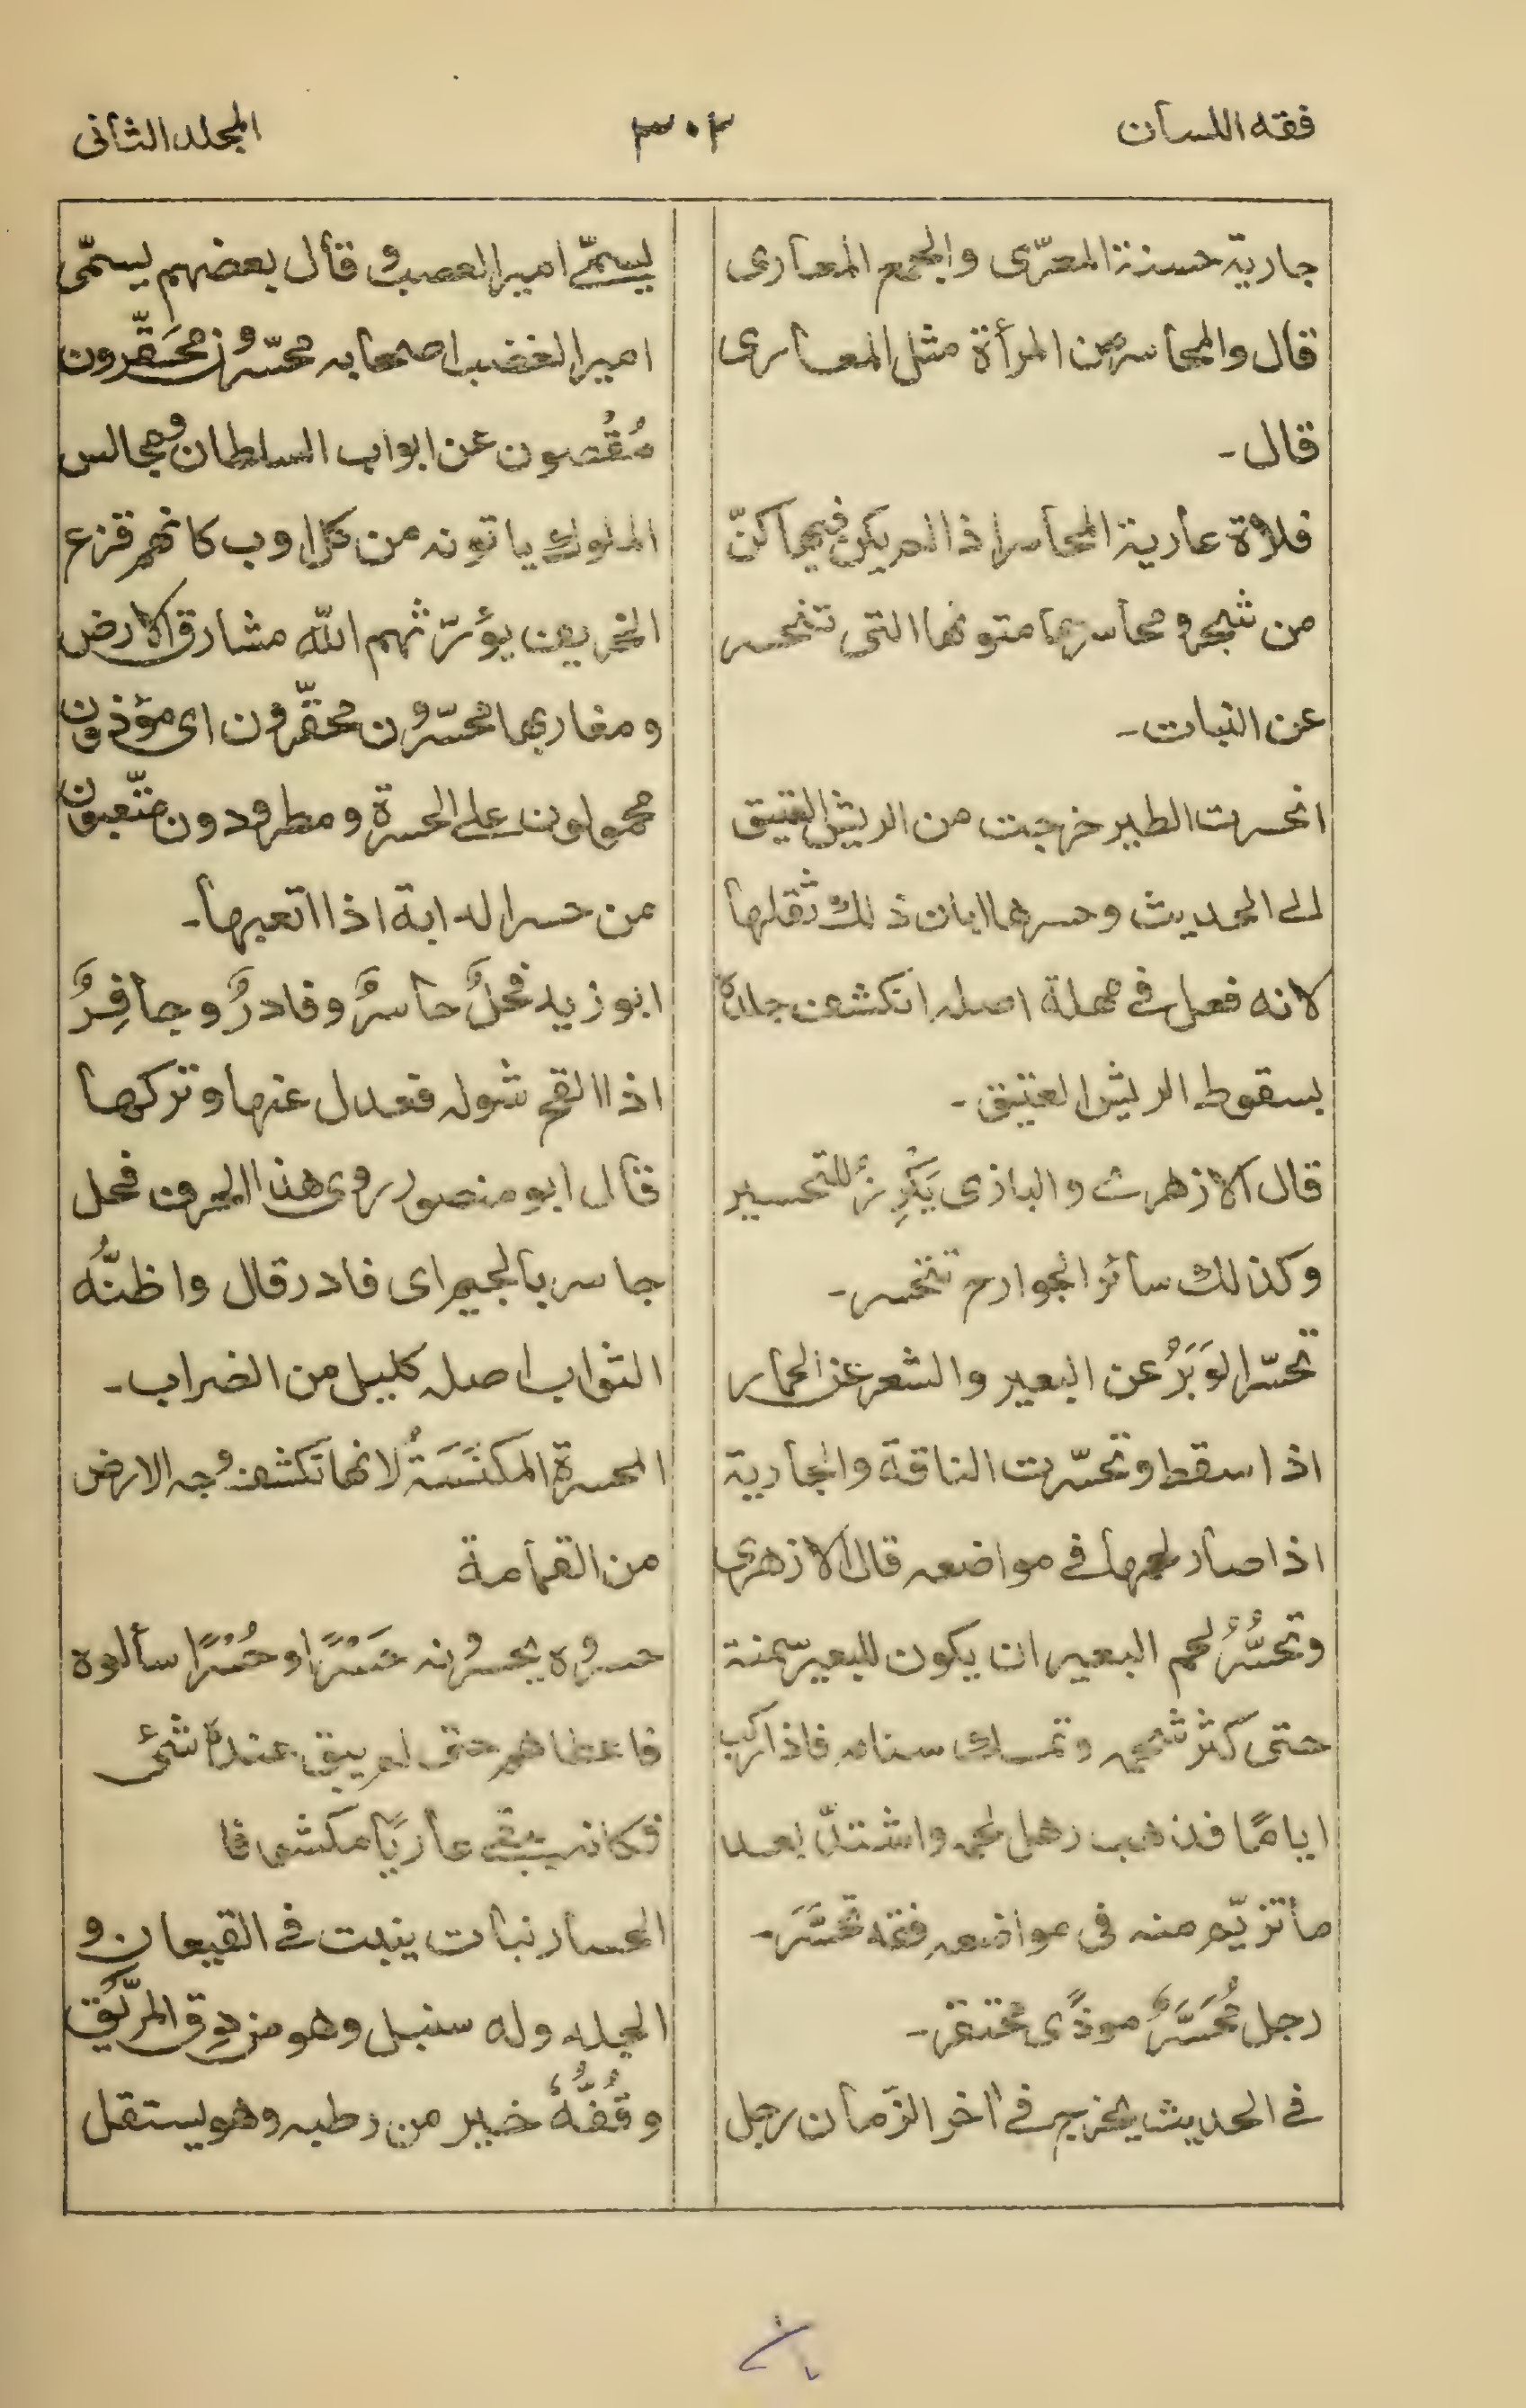 فقه اللسان
٣٠٢
المجلد الثانی
جاریة حسنة المعرّی والجمع المعاری
قال والمحاسر من المرأة مثل المعاری
قال -
فلاة عاریة المحاسر اذا لم یکن فیها کنّ
من شجر ومحاسرها متونها التی تنحسر
عن النبات -
انحسرت الطیر خرجت من الریش العتیق
الی الحدیث وحسرها ابان ذلك ثقلها
لانه فعل فی مهلة اصله انکشف جلده
بسقوط الریش العتیق -
قال الازهری والبازی یَکْرِزُ للتحسیر
وکذلك سائر الجوارح تتحسر -
تحسّر الوَبَرُ عن البعیر والشعر عن الحمار
اذا سقط وتحسّرت الناقة والجاریة
اذا صار لحمها فی مواضعه قال الازهری
وتحسُّرُ لحم البعیر ان یکون للبعیر سمنة
حتی کثر شحمه وتمك سنامه فاذا رکب
ایامًا فذهب رهل لحمه واشتدّ بعد
ما تزیّم منه فی مواضعه فقد تحسَّرَ -
رجل مُحَسَّرٌ موذًی محتقر -
فی الحدیث یخرج فی اخر الزّمان رجل
یسمّی امیر العصب و قال بعضهم یسمّی
امیر الغضب اصحابه محسّرون محَقّرون
مُقْصون عن ابواب السلطان ومجالس
الملوك یاتونه من کل اوب کانهم قزع
الخریف یؤرّثهم اللّٰه مشارق الارض
ومغاربها محسّرون محقّرون ای مؤذون
محمولون علی الحسرة ومطرودون متّعبون
من حسر الدابة اذا اتعبها -
ابو زید فحلٌ حاسرٌ وفادرٌ وجافِرٌ
اذا القح شوله فعدل عنها وترکها
قال ابو منصور روی هذا الحرف فحل
جاسر بالجیم ای فادر قال واظنُّه
الثواب اصله کلیل من الضراب -
المحسرة المکنَسَةُ لانها تکشف وجه الارض
من القمامة
حسروه یحسرونه حَسْرًا وحُسْرًا سألوه
فاعطاهم حتی لم یبق عنده شئ
فکانه یبقی عاریًا مکشوفا
الحسار نبات ینبت فی القیعان و
الجلد وله سنبل وهو من دِق المرّیق
وقُفُّهُ خیر من رطبه وهو یستقل